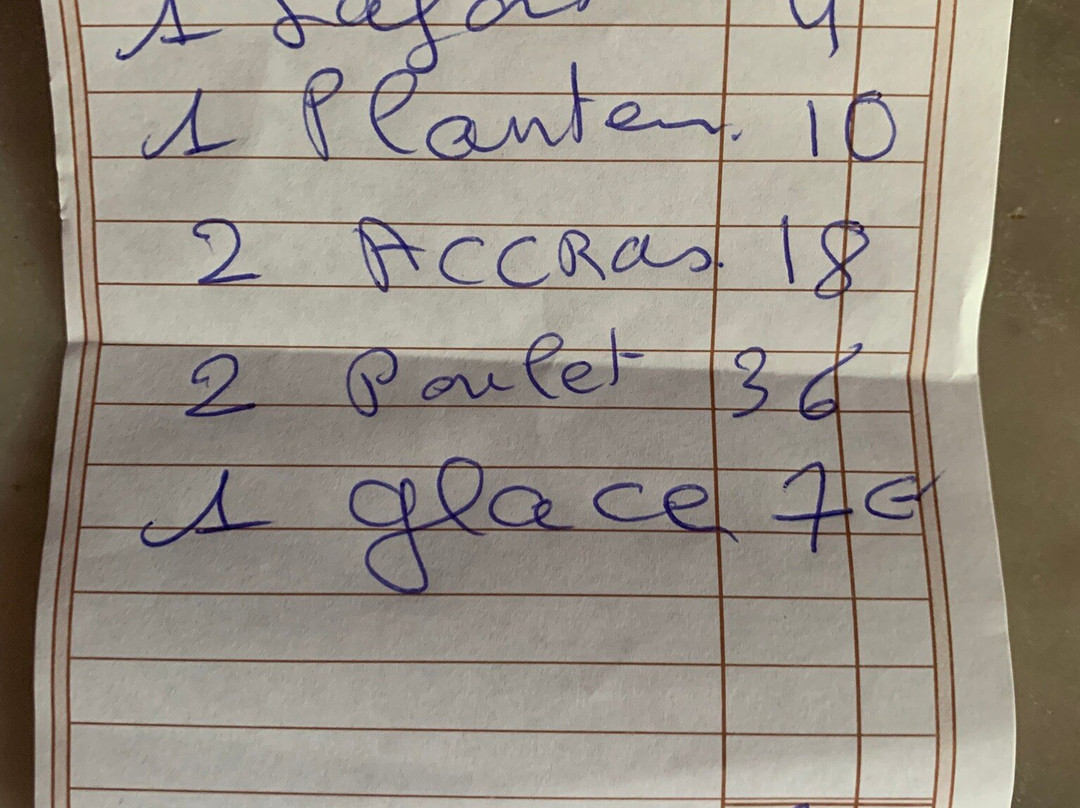 1 4
1 Planteur. 10
2 Accras. 18
2 Poulet 36
1 glace 7€